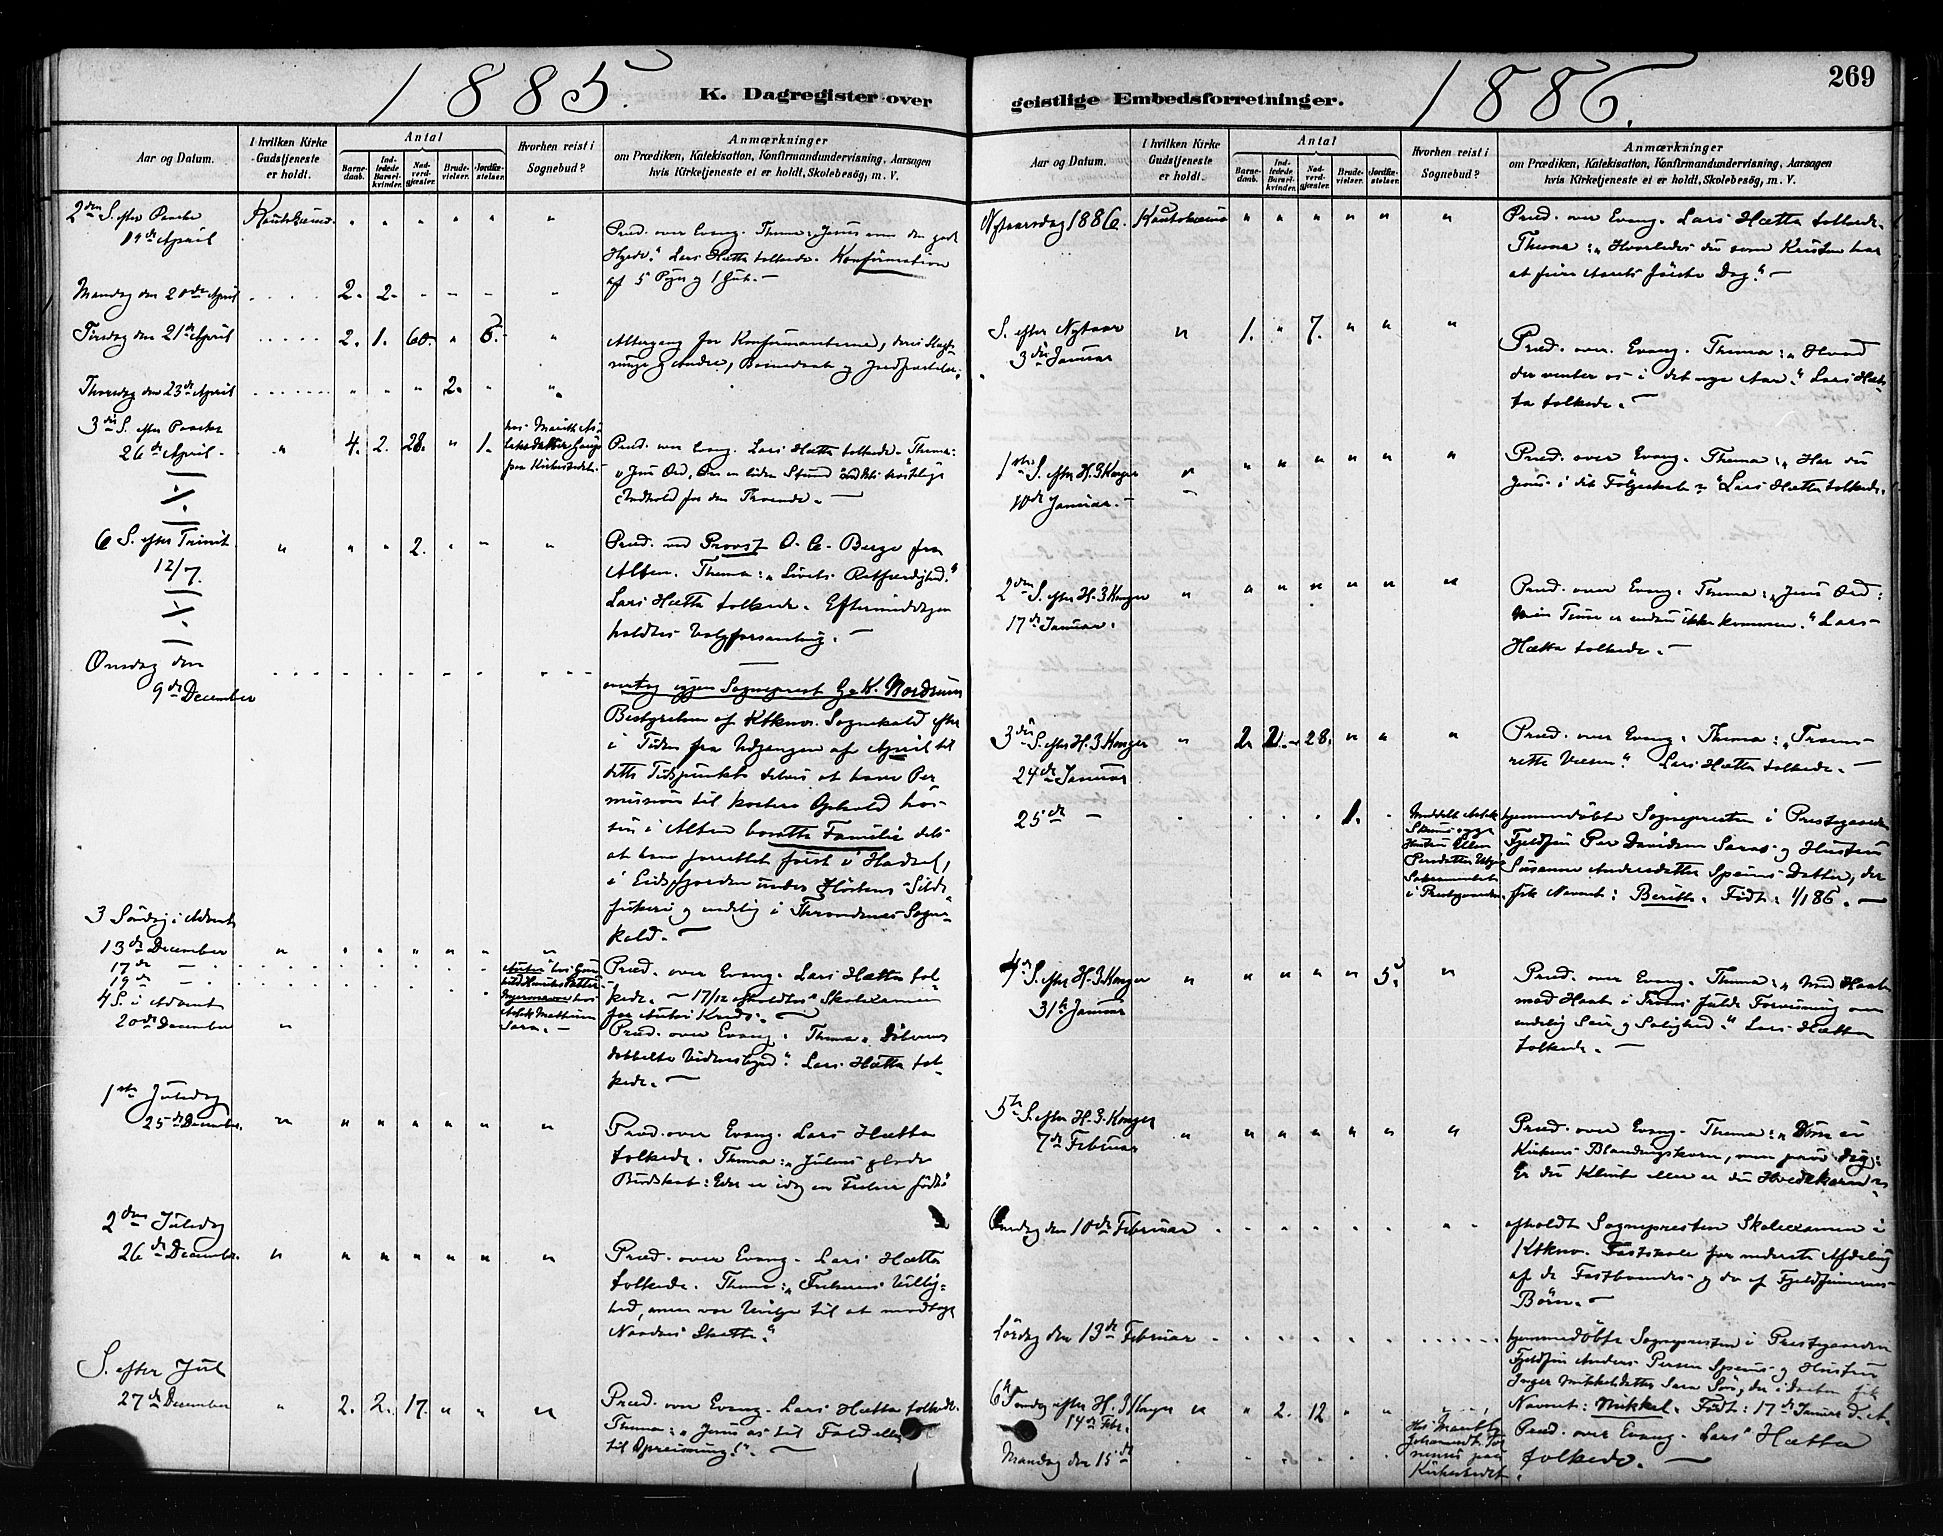 1885.
K. Dagregister over
Aar og Datum.
I hvilken Kirke
Gudstjeneste
er holdt.
Antal
Barne-
daab.
Ind-
ledede
Barsel-
kvinder.
Nad-
verd-
gjæster.
Brude-
vielser.
Jordfæ-
stelser.
Hvorhen reist i
Sognebud?
Anmærkninger
om Prædiken, Katekisation, Konfirmandundervisning, Aarsagen
hvis Kirketjeneste ei er holdt, Skolebesøg, m. V.
2den S. efter Paaske
19de April
Kautokeino
Præd. over Evang. Thema: Jesus som den gode
Hyrde." Lars Hætta tolkede. Konfirmation
af 5 Piger og 1 Gut. -
Mandag den 20de April 2. 2.
Tirsdag den 21de April 2. 1. 60. 6.
Altergang for Konfirmanterne, deres Slægt-
ninge og andre, Barnedaab og Jordfæstelse.
Thorsdag den 23de April 2.
3die S. efter Paaske
26de April 4. 2. 28. 1.
hos Marith
paa Kirkestedet. -
Præd. over Evang. Lars Hætta tolkede. Thema:
Jesu Ord, Om en liden Stund
Indhold for den Troende. -
6 S. efter Trinit.
12/7. 2.
Præd. ved Provst O. C. Berge fra
Alten. Thema: "Livets Retfærdighed."
Lars Hætta tolkede. Eftermiddagen
holdtes Valgforsamling. -
Onsdag den
9de December
overtog igjen Sogneprest G. K. Nordrum
Bestyrelsen af Ktknos. Sognekald efter
i Tiden fra Udgangen af April til
dette Tidspunkt delvis at have Per
mission til kortere Ophold hos
sin i Alten bosatte Familie dels
at have forrettet først i Hadsel,
i Eidsfjorden under Høstens Silde
fiskeri og endelig i Throndenes Sogne-
kald. -
3 Søndag i Advent
13de December
17de -
19de -
Præd. over Evang. Lars Hætta tol-
kede. - 17/12 afholdtes Skolexamen
for Autsi Kreds. -
4 S. i Advent
20de December
Sara. -
Præd. over Evang. Thema: Døberens
dobbelte Vidnesbyrd." Lars Hætta tol-
kede. -
1ste Juledag
25de Decembr.
Præd. over Evang. Lars Hætta
tolkede. Thema: "Julens glade
Budskab: Eder er idag en Frelser født"
2den Juledag
26de Decembr.
Præd. over Evang. Lars Hætta
tolkede. Thema: "Frelserens Villig-
hed, men vor Uvilje til at modtage
Naadens Skatte."
S. efter Jul
27de December 2. 2. 17.
Præd. over Evang. Lars Hætta tolkede.
Thema: "Jesus os til Fald eller
til Opreisning!". -
geistlige Embedsforretninger.
1886.
269
Aar og Datum.
I hvilken Kirke
Gudstjeneste
er holdt.
Antal
Barne-
daab.
Ind-
ledede
Barsel-
kvinder.
Nad-
verd-
gjæster.
Brude-
vielser.
Jordfæ-
stelser.
Hvorhen reist i
Sognebud?
Anmærkninger
om Prædiken, Katekisation, Konfirmandundervisning, Aarsagen
hvis Kirketjeneste ei er holdt, Skolebesøg, m. V.
Nytaarsdag 1886. Kautokeino
Præd. over Evang. Lars Hætta tolkede.
Thema: "Hvorledes du som Kristen har
at feire Aarets første Dag." -
S. efter Nytaar
3die Januar 1. 7.
Præd. over Evang. Thema: "Hvad
der venter os i det nye Aar." Lars Hæt-
ta tolkede. -
1ste S. efter H. 3 Konger
10de Januar. -
Præd. over Evang. Thema: "Har du
Jesus i dit Følgeskab?" Lars Hætta tolkede.
2den S. efter H. 3 Konger
17de Januar.
Præd. over Evang. Thema: "Jesu Ord:
Min Time er endnu ikke kommen." Lars
Hætta tolkede. -
3die S. efter H. 3 Konger
24de Januar 2. 2. 28.
Præd. over Evang. Thema: "Troens
rette Væsen." Lars Hætta tolkede. -
25de - 1.
Hustru Ellen
Persdatter
Sakramentet
i Prestegaarden.
hjemmedøbte Sognepresten i Prestegaarden
Fjeldfin Per Davidsen Saras og Hustru
Susanne Andersdatter Speins Datter, der
fik Navnet: Berith. Født: 1/1 86. -
4de S. efter H. 3 Konger
31te Januar 5.
Præd. over Evang. Thema: "Mod Haab
mod Haab i Troens fulde Forvisning om
endelig Seir og Salighed." Lars Hætta
tolkede. -
5te S. efter H. 3. Konger
7de Februar
Præd. over Evang. Thema: "Døm ei
Kirkens Blandingskorn, men prøv dig:
Er du Klinte eller er du Hvedekorn?"
Onsdag den 10de Februar
afholdt Sognepresten Skolexamen i
Ktknos. Fastskole for nederste Afdeling
af de Fastboendes og do af Fjeldfinnernes
Børn. -
Lørdag den 13de Februar
hjemmedøbte Sognepresten i Prestegaarden
Fjeldfin Anders Persen Speins og Hustru
Inger Mikkelsdatter Sara Søn, der i Daaben fik
Navnet: Mikkel. Født: 17de Januar d. A.
6te Søndag efter H. 3 Konger
14de Febr. 2. 12.
Præd. over Evang. Lars Hætta
tolkede. -
Mandag den 15de
Hos Marith
paa
Kirkestedet.